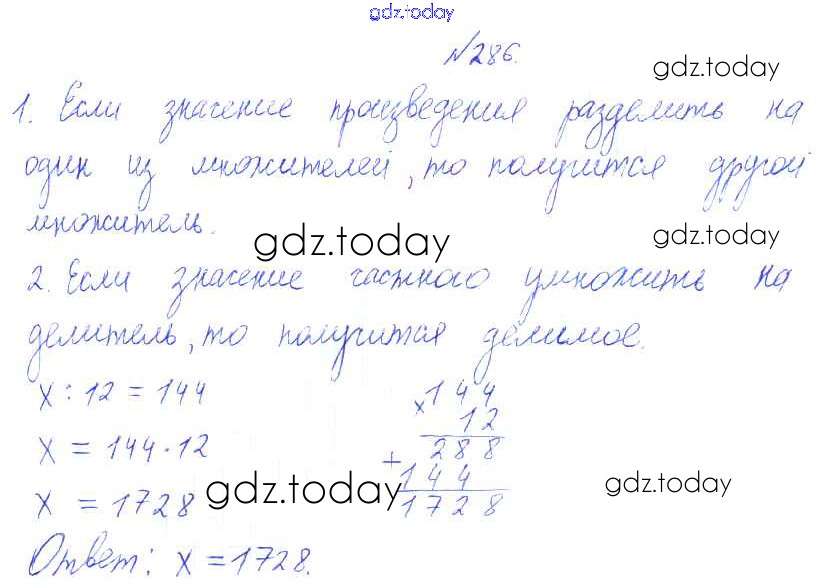 gdz.today
№286.
gdz.today
1. Если значение произведения разделить на
один из множителей, то получится другой
множитель.
gdz.today
gdz.today
2. Если значение частного умножить на
делитель, то получится делимое.
x : 12 = 144
x = 144 · 12
x = 1728
× 144
12
288
+
144
1728
gdz.today
gdz.today
Ответ: x = 1728.